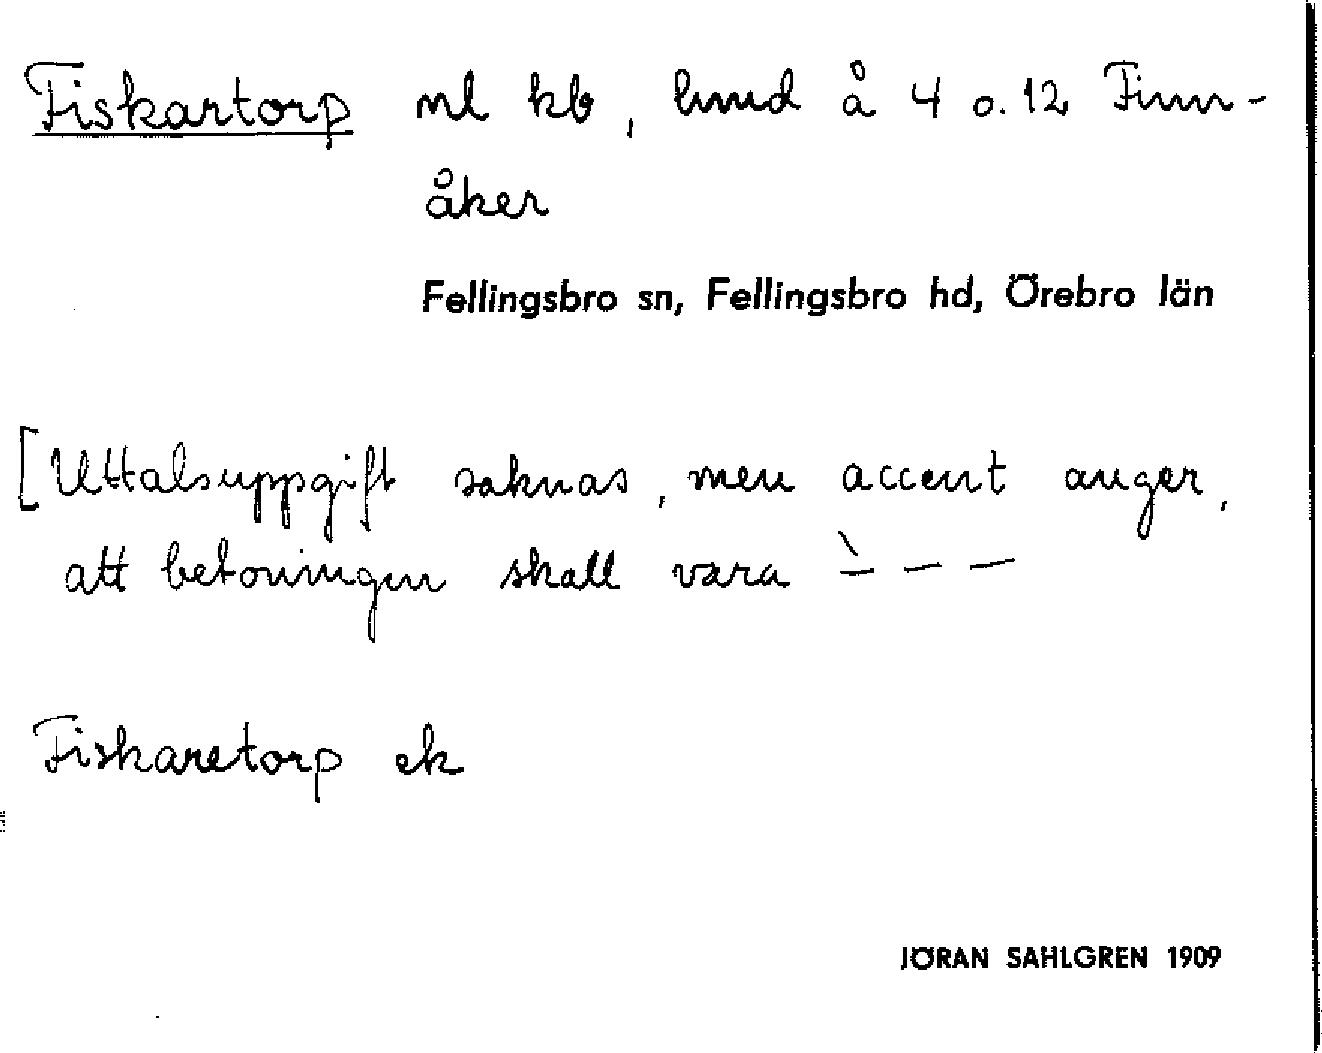 Fiskartorp ml kb, hmd å 4 o. 12 Finn-
åker
Fellingsbro sn, Fellingsbro hd, Örebro län
[Uttalsuppgift saknas, men accent anger,
att betoningen skall vara ̀– – –
Fiskaretorp ek
JÖRAN SAHLGREN 1909